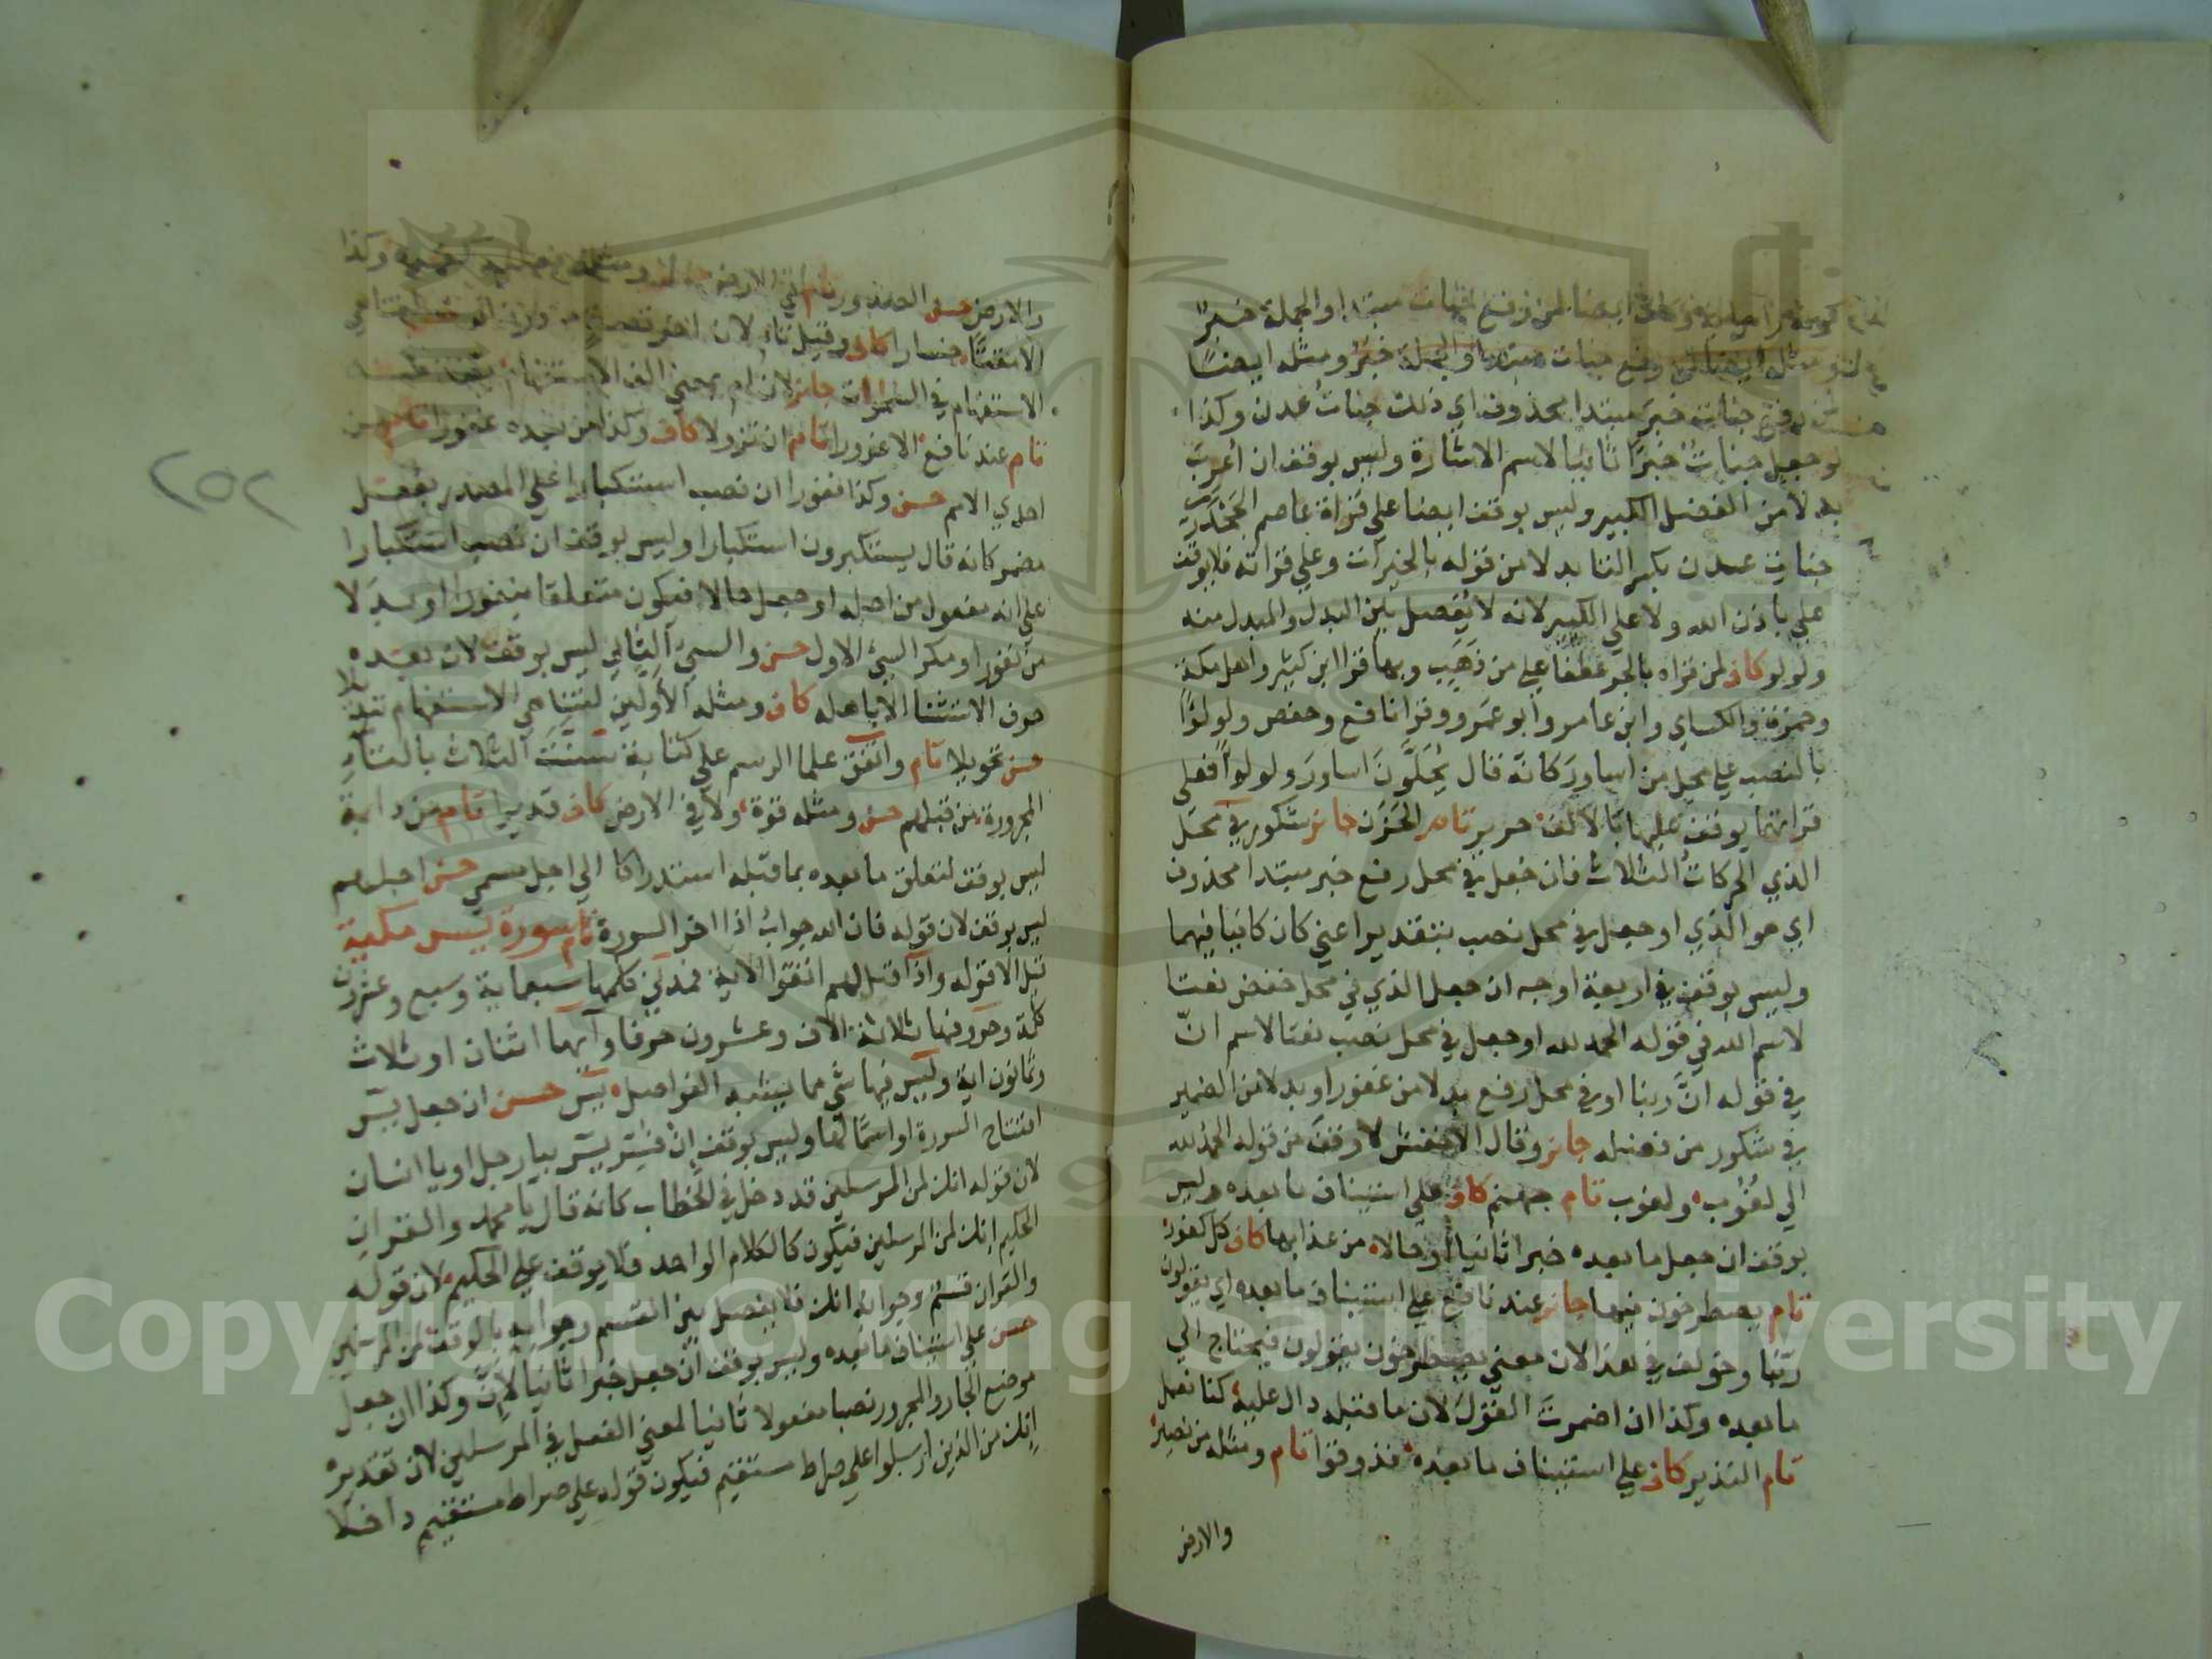 مبتدا والجملة خبر
رفع جنات مبتدا والجملة خبر ومثله ايضا
رفع جنات خبر مبتدا محذوف اي ذلك جنات عدن وكذا
لو جعل جنات خبرا ثانيا لاسم الاشارة وليس بوقف ان أعرب
بدلا من الفضل الكبير وليس بوقف ايضا على قراة عاصم الجحدري
جنات عدن بكسر التا بدلا من قوله بالخيرات وعلي قراته فلا يوقف
علي باذن الله ولا علي الكبير لانه لا يفصل بين البدل والمبدل منه
ولولو كاف لمن قراه بالجر عطفا علي من ذهب وبها قرا ابن كثير واهل مكة
وحمزة والكساي وابن عامر وأبو عمرو وقرا نافع وحفص ولولؤا
بالنصب علي محل من اساور كانه قال يحلون اساور ولولوا فعلي
قراتهما يوقف عليها بالالف حرير تام الحزن جائز شكور في محل
الذي الحركات الثلاث فان جعل في محل رفع خبر مبتدا محذوف
اي هو الذي او جعل في محل نصب بتقدير اعني كان كافيا فيهما
وليس بوقف في اربعة اوجه ان جعل الذي في محل خفض نعتا
لاسم الله في قوله الحمد لله او جعل في محل نصب نعتا لاسم ان
في قوله ان ربنا او في محل رفع بدلا من غفور او بدلا من الضمير
في شكور من فضله جايز وقال الاخفش لا وقف من قوله الحمد لله
الي لغوب ولغوب تام جهنم كاف علي استيناف ما بعده وليس
بوقف ان جعل ما بعده خبرا ثانيا او حالا من عذابها كاف كل كفور
تام يصطرخون فيها جايز عند نافع علي استيناف ما بعده اي يقولون
ربنا وخولف في هذا لان معني يصطرخون يقولون فيحتاج الي
ما بعده وكذا ان اضمرت القول لان ما قبله دال عليه كنا نعمل
تام النذير كاف علي استيناف ما بعده فذوقوا تام ومثله من نصير
والارض
والارض حسن الصدور تام في الارض وكذا
خسارا كاف وقيل تام لان
الاستفهام في السموات جايز لان ام بمعني الف الاستفهام
تام عند نافع الا غرورا تام ان تزولا كاف وكذا من بعده غفورا تام من
احدي الامم حسن وكذا نفورا ان نصب استكبارا علي المصدر بفعل
مضمر كانه قال يستكبرون استكبارا وليس بوقف ان نصب استكبارا
علي انه مفعول من اجله او جعل حالا فيكون متعلقا بنفورا او بدلا
من نفورا ومكر السيئ الاول حسن والسيئ الثاني ليس بوقف لان بعده
حرف الاستثنا الا باهله كاف ومثله الأولين لتناهي الاستفهام تبديلا
حسن تحويلا تام واتفق علما الرسم علي كتابة سنت الثلاث بالتاء
المجرورة من قبلهم حسن ومثله قوة ولا في الارض كاف قديرا تام من دابة
ليس بوقف لتعلق ما بعده بما قبله استدراكا الي اجل مسمي حسن اجلهم
ليس بوقف لان قوله فان الله جواب اذا اخر السورة تام سورة يس مكية
قيل الا قوله واذا قيل لهم اتقوا الاية فمدني كلمها سبعماية وسبع وعشرون
كلمة وحروفها ثلاثة الاف وعشرون حرفا وآيها اثنان او ثلاث
وثمانون اية وليس فيها شي مما يشبه الفواصل يس حسن ان جعل يس
افتتاح السورة او اسما لها وليس بوقف ان فسر يس بيا رجل او يا انسان
لان قوله انك لمن المرسلين قد دخل في الخطاب كانه قال يا محمد والقران
الحكيم انك لمن المرسلين فيكون كالكلام الواحد فلا يوقف علي الحكيم لان قوله
والقران قسم وجوابه انك فلا يفصل بين القسم وجوابه بالوقف لمن المرسلين
حسن علي استيناف ما بعده وليس بوقف ان جعل خبرا ثانيا لان وكذا ان جعل
موضع الجار والمجرور نصبا مفعولا ثانيا لمعني الفعل في المرسلين لان تقديره
انك من الذين ارسلوا علي صراط مستقيم فيكون قوله علي صراط مستقيم داخلا
٢٥٢
Copyright © King Saud University
1957